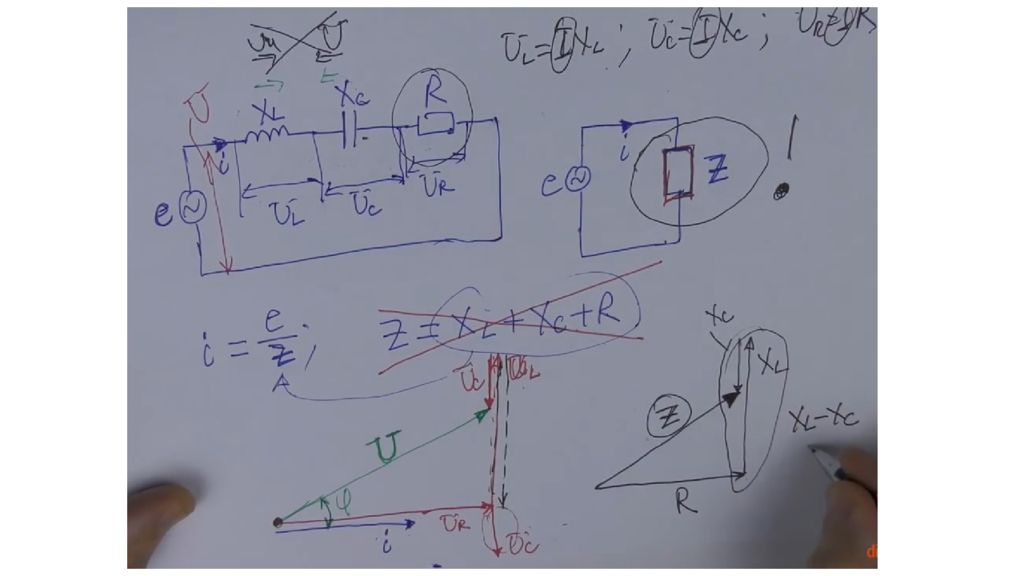 U_L = I X_L ; U_C = I X_C ; U_R = I R
U
X_L
X_C
R
i
e
U_L
U_C
U_R
e
i
Z
!
i = e/Z ; Z = X_L + X_C + R
U_C U_L
U
φ
i
U_R
U_C
X_C
X_L
Z
X_L - X_C
R